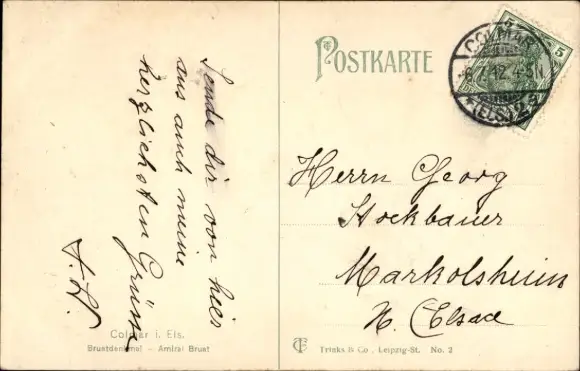 Sende dir von hier
aus auch meine
herzlichsten Grüsse
A. H.
Colmar i. Els.
Bruatdenkmal - Amiral Bruat
POSTKARTE
5
5
COLMAR
6.7.12. 4-5N.
* (ELS) 2 a
Herrn Georg
Stockbauer
Markolsheim
N. Elsace
Trinks & Co., Leipzig-St. No. 2